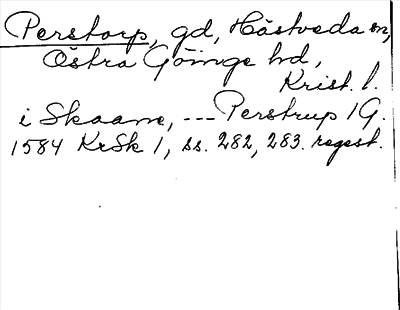 Perstorp, gd, Hästveda sn,
Östra Göinge hd,
Krist. l.
i Skaane, --- Perstrup 1 G.
1584 KrSk 1, ss. 282, 283. regest.